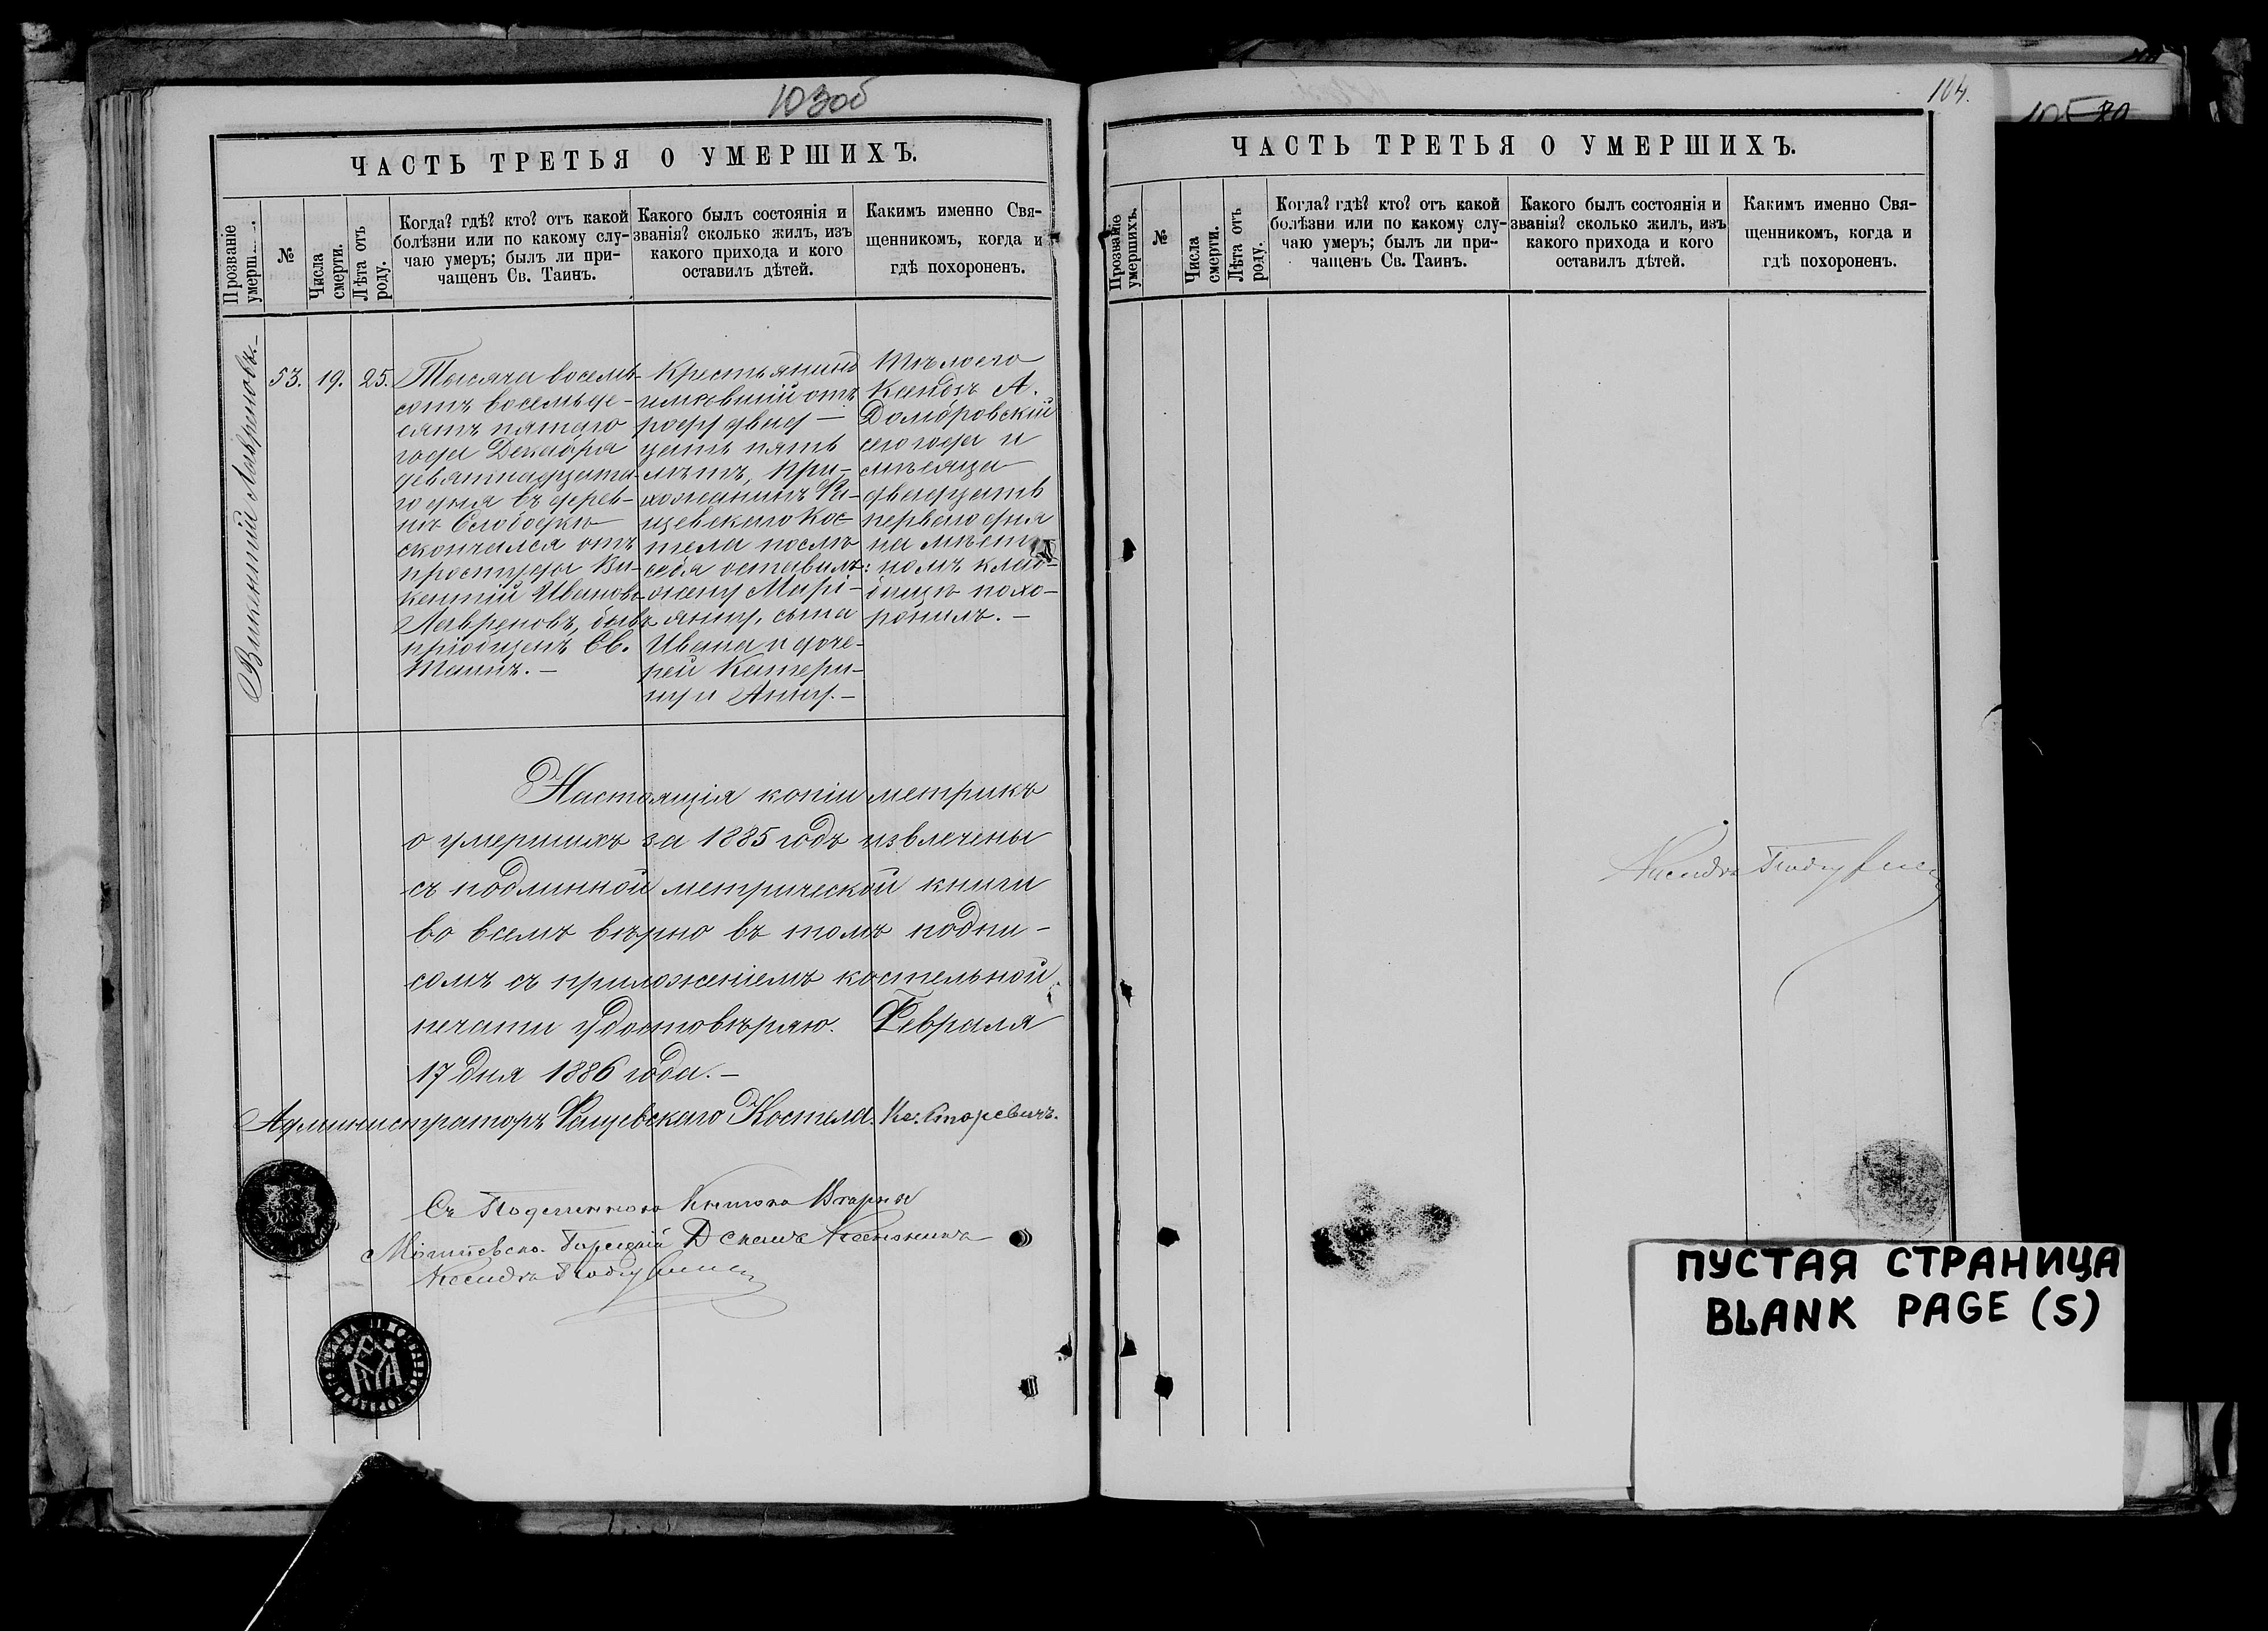 103об
ЧАСТЬ ТРЕТЬЯ О УМЕРШИХЪ.
Прозваніе умерш
№
Числа смерти.
Лѣта отъ роду.
Когда? гдѣ? кто? отъ какой
болѣзни или по какому слу-
чаю умеръ; былъ ли при-
чащенъ Св. Таинъ.
Какого былъ состоянія и
званія? сколько жилъ, изъ
какого прихода и кого
оставилъ дѣтей.
Какимъ именно Свя-
щенникомъ, когда и
гдѣ похороненъ.
Викентій Лавреновъ.–
53.
19.
25.
Тысяча восемь-
сотъ восемьде-
сятъ пятаго
года Декабря
девятнадцата-
го дня въ дерев-
нѣ Слободкѣ
скончался отъ
простуды Ви-
кентій Ивановъ
Лавреновъ, бывъ
пріобщенъ Св.
Таинъ.–
Крестьянинъ
имѣвшій отъ
роду двад–
цать пять
лѣтъ, При-
хожанинъ Фа-
щевскаго Кос-
тела послѣ
себя оставилъ:
жену Марі-
янну, сына
Ивана и доче-
рей Катери-
ну и Анну.–
Тѣло его
Ксендзъ А.
Домбровскій
сего года и
мѣсяца
двадцать
перваго дня
на мѣст
номъ клад-
бищѣ похо-
ронилъ.–
Настоящія копіи метрикъ
о умершихъ за 1885 годъ извлечены
съ подлинной метрической книги
во всемъ вѣрно въ томъ подпи-
сомъ съ приложеніемъ костельной
печати удостовѣряю. Февраля
17 дня 1886 года.–
Администраторъ Фащевскаго Костела. Кс:
Съ
Ксендзъ
104.
ЧАСТЬ ТРЕТЬЯ О УМЕРШИХЪ.
Прозваніе умершихъ.
№
Числа смерти.
Лѣта отъ роду.
Когда? гдѣ? кто? отъ какой
болѣзни или по какому слу-
чаю умеръ; былъ ли при-
чащенъ Св. Таинъ.
Какого былъ состоянія и
званія? сколько жилъ, изъ
какого прихода и кого
оставилъ дѣтей.
Какимъ именно Свя-
щенникомъ, когда и
гдѣ похороненъ.
Ксендзъ
ПУСТАЯ СТРАНИЦА
BLANK PAGE (S)